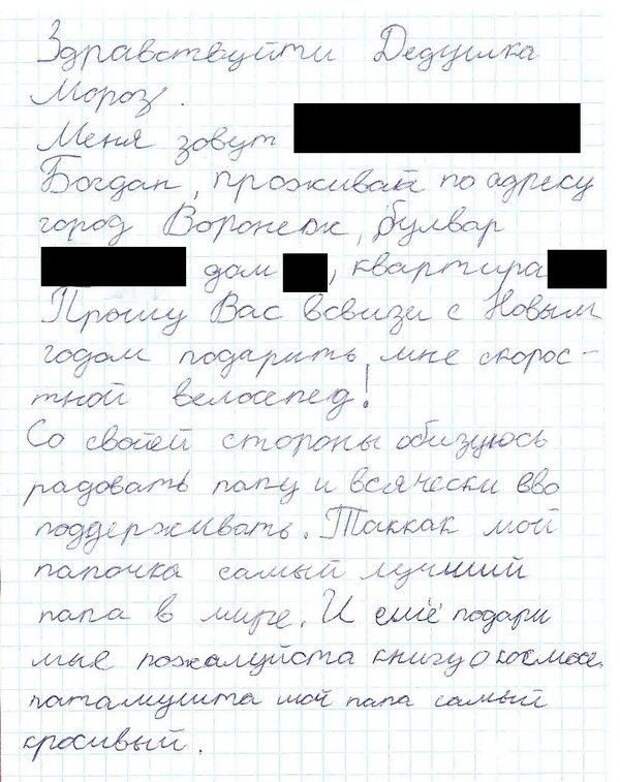 Здравствуйти Дедушка
Мороз.
Меня зовут
Богдан, проживай по адресу
город Воронеж, булвар
дом , квартира
Прошу Вас всвизи с Новым
годом подарить мне скорос-
тной велосепед!
Со свойей стороны обизуюсь
радовать папу и всячески вво
поддерживать. Таккак мой
папочка самый лучший
папа в мире. И ещё подари
мне пожалуйста книгу о космосе.
патамушта мой папа самый
кросивый.